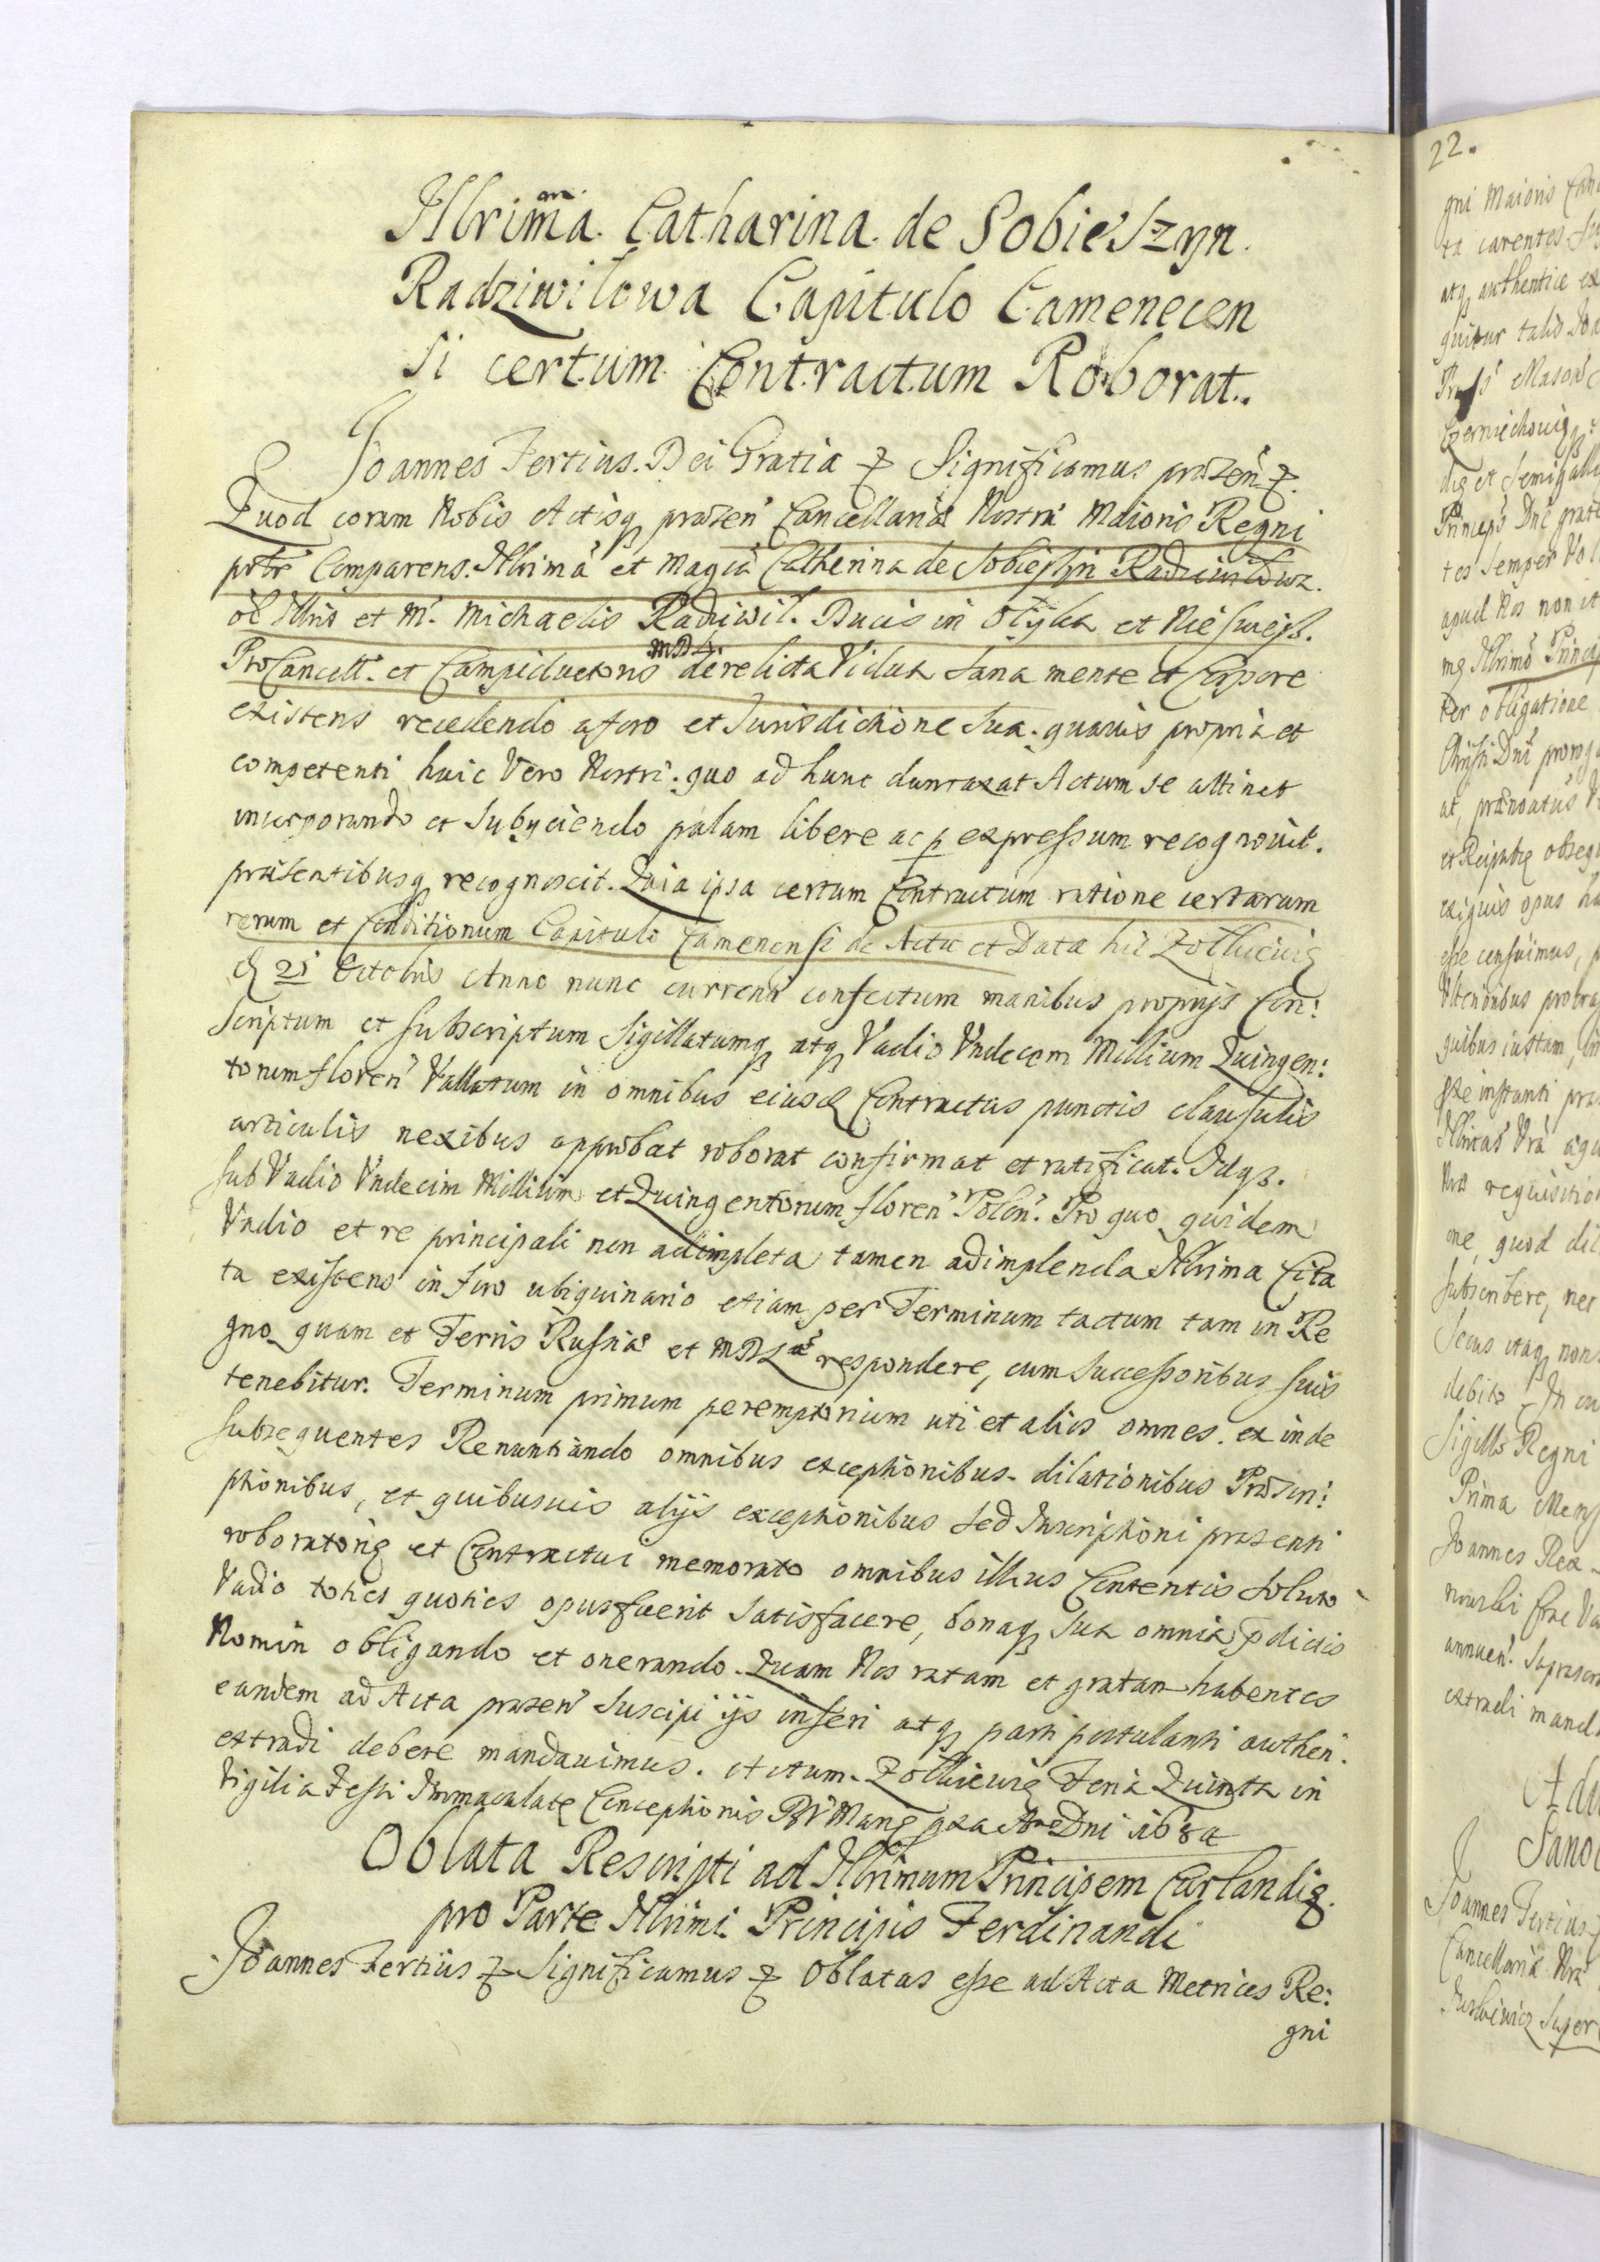 Illrima. Catharina. de Sobieszyn.
Radziwilowa Capitulo Camenecen
si certum Contractum Roborat..
Joannes Tertius. Dei Gratia Significamus præsen
Quod coram Nobis Actisq præsen Cancellariæ Nostræ Maioris Regni
Comparens. Illrima et Magca Catherina de Sobieszyn Radziwilowa.
ol Illris et M. Michaelis Radziwil. Ducis in Olyka et Niesweiss.
ProCancell. et Campiductoris MDL derelicta Vidua Sana mente et Corpore
existens recedendo a foro et Jurisdictione Sua. quavis propria et
competenti huic Vero Nostri. quo ad hunc duntaxat Actum se attinet
incorporando et Subyciendo palam libere ac p expressum recognouit.
præsentibusq recognoscit. Quia ipsa certum Contractum ratione certarum
rerum et Conditionum Capitulo Camenensi de Actu et Data hic Zolkieuiæ
d 25 Octobris Anno nunc currenti confectum manibus proprijs Con:
scriptum et subscriptum Sigillatumq atq Vadio Undecem Millium Quingen:
torum floren Vallatum in omnibus eiusd Contractus punctis clausulis
articulis nexibus approbat roborat confirmat et ratificat. Idqz.
sub Vadio Undecim Millium et Quingentorum floren Polon. Pro quo quidem
Vadio et re principali non adimpleta tamen adimplenda Illrima Cita
ta existens in foro ubiquinario etiam per Terminum tactum tam in Re
gno quam et Terris Russiæ et MDL respondere, cum Successoribus suis
tenebitur. Terminum primum peremptorium uti et alios omnes. ex inde
subsequentes Renuntiando omnibus exceptionibus. dilationibus Præscri:
ptionibus, et quibusuis alijs exceptionibus sed Inscriptioni præsenti
roboratoriæ et Contractui memorato omnibus illius Contentis soluto
Vadio toties quoties opus fuerit Satisfacere, bonaq Sua omnia pdictis
Nomin obligando et onerando. Quam Nos ratam et gratam habentes
eandem ad Acta præsen Suscipi ijs inseri atq parti postulanti authen.
extradi debere mandauimus. Actum. Zolkieuiæ Feria Quinta in
Vigilia Festi Immaculatæ Conceptionis BV Mariæ Dni 1684
Oblata Rescripti ad Illrimum Principem Curlandiæ.
pro Parte Illrimi Principis Ferdinandi
Joannes Tertius Significamus Oblatas esse ad Acta Metrices Re:
gni
22.
gni Maioris
ta carentes
atq authentice ex
quitur talis
Czerniechouiæq
diæ et Semigalli
Princeps
tes Semper
apud Nos non it
mæ Illrimo Princi
per obligatione
Christi Dni
at, prænoatus
exiquis opus
esse censuimus,
quibus iustam,
sse instanti
Illritas Vra
requisitio
me, quod
subscribere, nec
Secus itaq non
debito. In
Sigillo Regni
Prima
Joannes Rex
annuen. Suprascr
extradi mand
Joannes Tertius
Cancellariæ Nræ
super